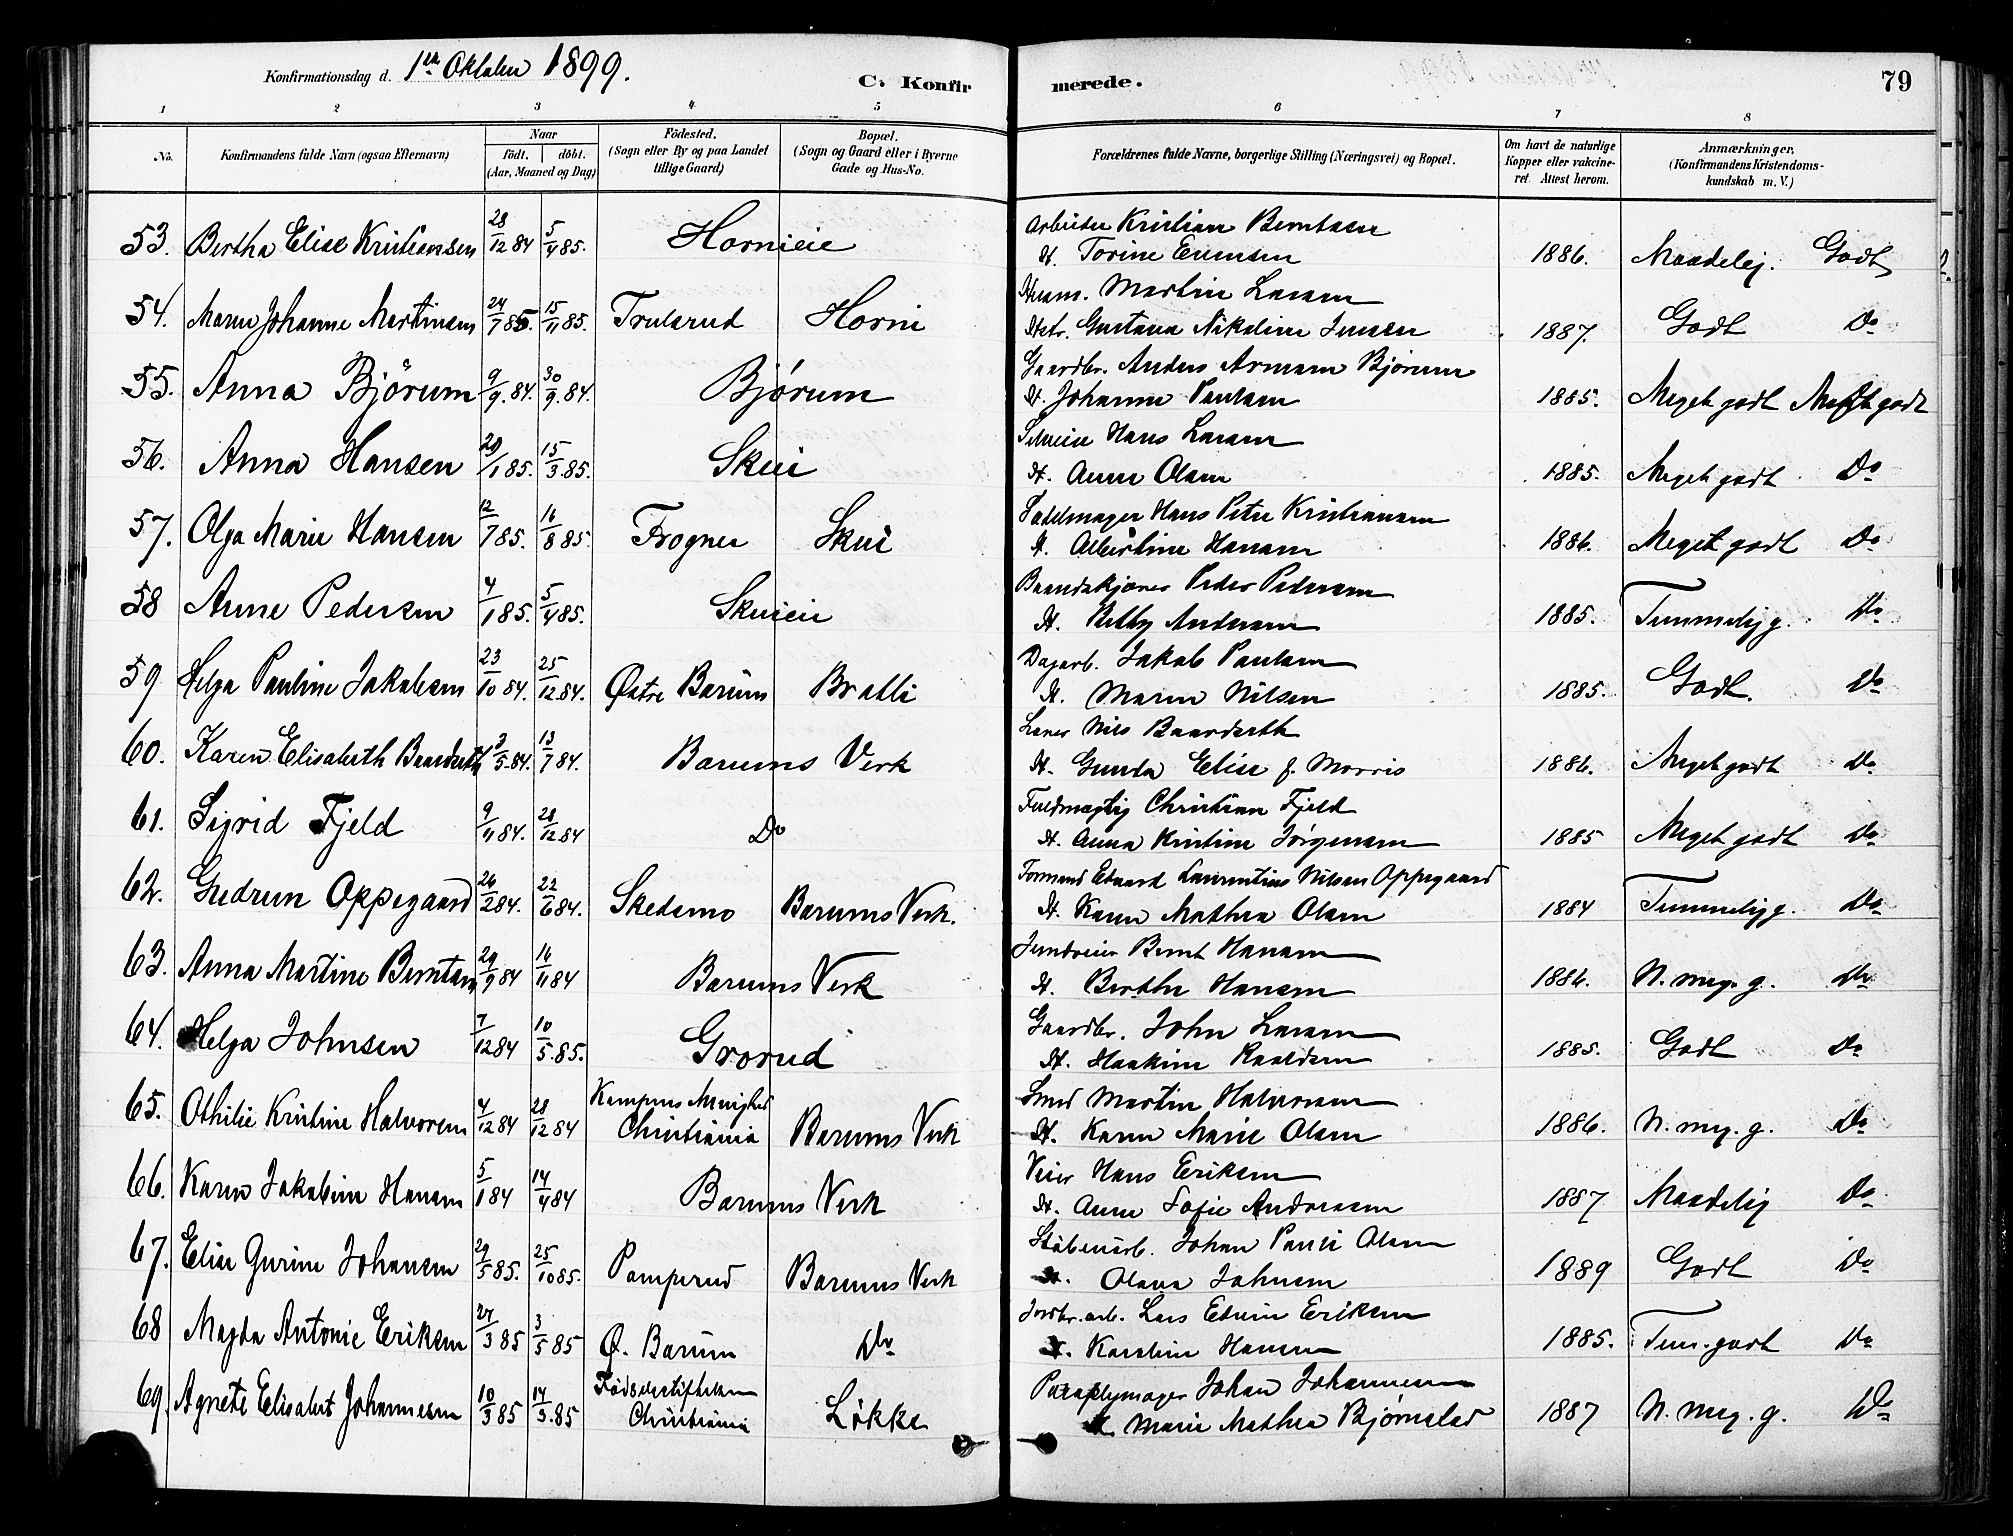 Konfirmationsdag d. 1ste Oktober 1899.
C. Konfirmerede.
79
1 2 3 4 5 6 7 8
No.
Konfirmandens fulde Navn (ogsaa Efternavn)
Naar
födt. | döbt.
(Aar, Maaned og Dag)
Födested.
(Sogn eller By og paa Landet
tillige Gaard)
Bopæl.
(Sogn og Gaard eller i Byerne
Gade og Hus-No.
Forældrenes fulde Navne, borgerlige Stilling (Næringsvei) og Bopæl.
Om havt de naturlige
Kopper eller vakcine-
ret. Attest herom.
Anmærkninger.
(Konfirmandens Kristendoms-
kundskab m. V.)
53. Bertha Elise Kristiansen 28/12 84 5/4 85. Hornieie Arbeider Kristian Berntsen
H. Torine Evensen 1886. Maadelig. Godt
54. Maren Johanne Martinsen 24/7 85. 15/11 85. Trulsrud Horni Husm. Martin Larsen
Hstr. Gustava Nikoline Jensen 1887. Godt Do
55. Anna Bjørum 9/9. 84. 30/9. 84. Bjørum Gaardbr. Anders Bjørum
H. Johanne Paulsen 1885. Meget godt Meget godt
56. Anna Hansen 20/1 85. 15/3. 85. Skui Selveier Hans Larsen
H. Anne Olsen 1885. Meget godt Do
57. Olga Marie Hansen 12/7 85. 16/8 85. Frogner Skui Sadelmager Hans Peter Kristiansen
H. Albertine Hansen 1886. Meget godt Do
58 Anne Pedersen 4/1 85. 5/4 85. Skuieie Peder Pedersen
H. Andersen 1885. Temmelig g. Do
59 Helga Pauline Jakobsen 23/10 84. 25/12 84. Østre Bærum Bratli Dagarb. Jakob Paulsen
H. Maren Nilsen 1885. Godt. Do
60. Karen Elisabeth Baarderth 3/5. 84. 13/7 84. Bærums Verk Nils Baarderth
H. Gunda Elise f. Morris 1886. Meget godt Do
61. Sigrid Fjeld 9/11 84. 28/12 84 Do Fuldmægtig Christian Fjeld
H. Anna Kristine Jørgensen 1885 Meget godt Do
62. Gudrun Oppegaard 26/2 84. 22/6 84. Skedsmo Bærums Verk. Formand Edvard Laurentius Nilsen Oppegaard
H. Karen Mathea Olsen 1884 Temmelig g. Do
63. Anna Martine Berntsen 29/9 84 16/11 84 Bærums Verk Bernt Hansen
H. Berthe Hansen 1886. N. meg. g. Do
64. Helga Johnsen 7/12 84 10/5. 85. Grorud Gaardbr. John Larsen
H. Haakine 1885. Godt Do
65. Othilie Kristine Halvorsen 4/12 84 28/12 84 Kampens Menighed
Christiania Bærums Verk Smed Martin Halvorsen
H. Karen Marie Olsen 1886. N. meg. g. Do
66. Karen Jakobine Hansen 5/1 84 14/4 84 Bærums Verk Veier Hans Eriksen
H. Anne Sofie Andersen 1887 Maadelig Do
67. Elise Gurine Johansen 29/5 85. 25/10 85. Pamperud Bærums Verk Støberiarb. Johan Olsen
H. Olava Johnsen 1889 Godt Do
68 Magda Antonie Eriksen 27/3 85 3/5 85 Ø. Bærum Do Jordbr. arb. Lars Edvin Eriksen
H. Karoline Hansen 1885. Tem. godt Do
69. Agnete Elisabet Johannesen 10/3 85 14/5. 85 Fødselsstiftelsen
Christiania Løkke Paraplymager Johan Johannesen
H. Marie Mathea Bjørnstad 1887 N. meg. g. Do